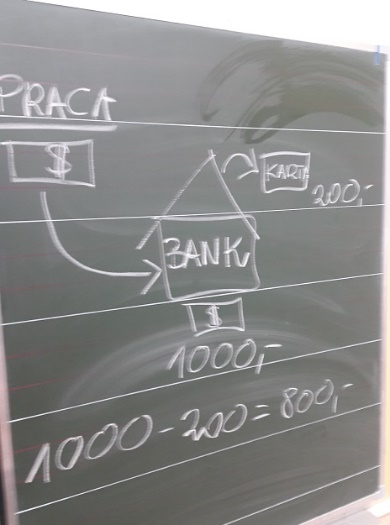 PRACA
$
KARTA
200,-
BANK
$
1000,-
1000-200=800,-